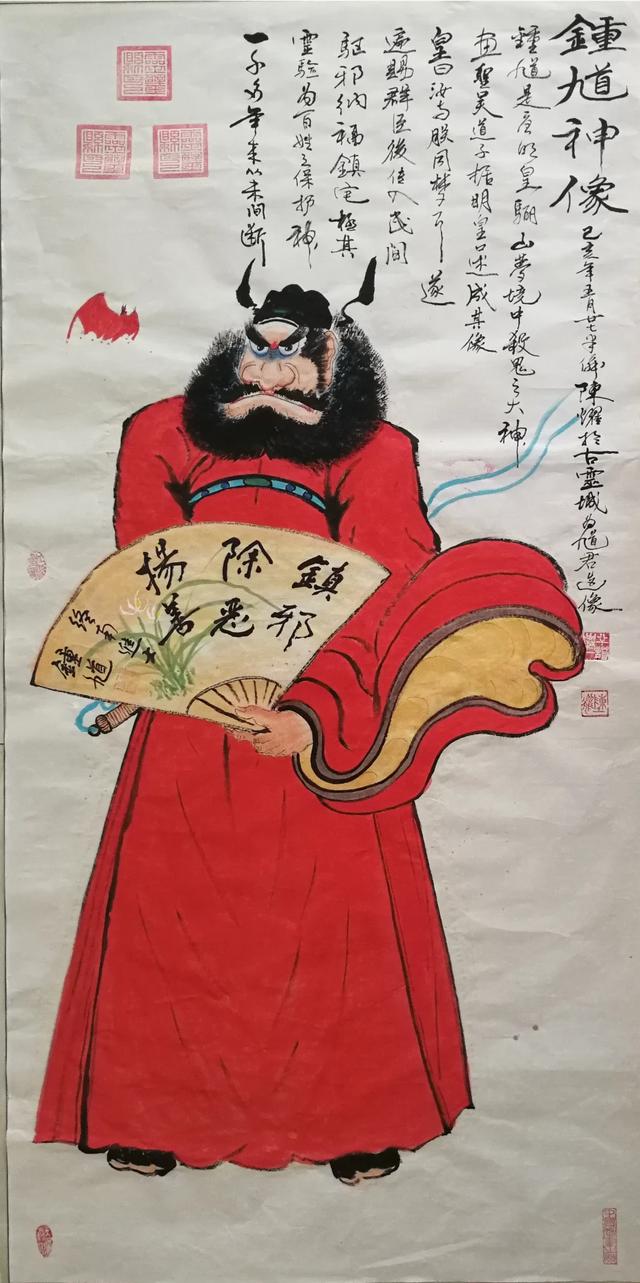 鍾馗神像
己亥年五月廿七 陳耀於古靈城為馗君造像
鍾馗是唐明皇驪山夢境中殺鬼之大神
畫聖吳道子據明皇口述成其像
皇曰汝與朕同夢 遂
遍賜群臣後傳入民間
驅邪納福鎮宅極其
靈驗為百姓之保护神
一千多年來從未間斷
鎮邪
除惡
揚善
終南進士
鍾馗